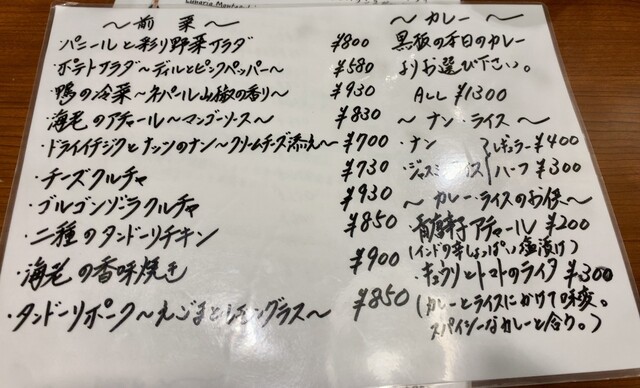 〜前菜〜
・パニールと彩り野菜サラダ ¥800
・ポテトサラダ〜ディルとピンクペッパー〜 ¥580
・鴨の冷菜〜ネパール山椒の香り〜 ¥930
・海老のアチャール〜マンゴーソース〜 ¥830
・ドライイチジクとナッツのナン〜クリームチーズ添え〜 ¥700
・チーズクルチャ ¥730
・ゴルゴンゾーラクルチャ ¥930
・二種のタンドーリチキン ¥850
・海老の香味焼き ¥900
・タンドーリポーク〜えごまとレモングラス〜 ¥850
〜カレー〜
黒板の本日のカレー
よりお選び下さい。
ALL ¥1300
〜ナン・ライス〜
・ナン レギュラー ¥400
・ジャスミンライス ハーフ ¥300
〜カレー・ライスのお供〜
青唐辛子アチャール ¥200
(インドの辛しょっぱい塩漬け)
・キュウリとトマトのライタ ¥300
(カレーとライスにかけて味変。
スパイシーなカレーと合う。)